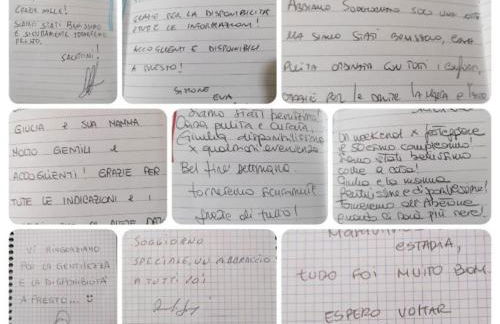 GRAZIE MILLE!
SIAMO STATI BENISSIMO
E SICURAMENTE TORNEREMO
PRESTO.
SALUTONI!
GRAZIE PER LA DISPONIBILITÀ
E TUTTE LE INFORMAZIONI!
ACCOGLIENTI E DISPONIBILI
A PRESTO!
SIMONE
EVA
ABBIAMO SOGGIORNATO SOLO UNA NOTTE
MA SIAMO STATI BENISSIMO,
PULITA ORDINATA CON TUTTI I CONFORT,
GRAZIE PER LE DRITTE
GIULIA E SUA MAMMA
MOLTO GENTILI E
ACCOGLIENTI! GRAZIE PER
TUTE LE INDICAZIONI E I
Siamo stati benissimo!
Casa pulita e curata,
Giulia disponibilissima
x qualsiasi evenienza
Bel fine settimana
torneremo sicuramente
Grazie di tutto!
Un weekend x festeggiare
il 50esimo compleanno!
Siamo stati benissimo
come a casa!
Giulia e la mamma
gentilissime e disponibilissime!
Torneremo all'Abetone
quando ci sarà più neve!
VI RINGRAZIAMO
PER LA GENTILEZZA
E LA DISPONIBILITÀ
A PRESTO...
SOGGIORNO
SPECIALE, UN ABBRACCIO
A TUTTI VOI
ESTADIA,
TUDO FOI MUITO BOM.
ESPERO VOLTAR